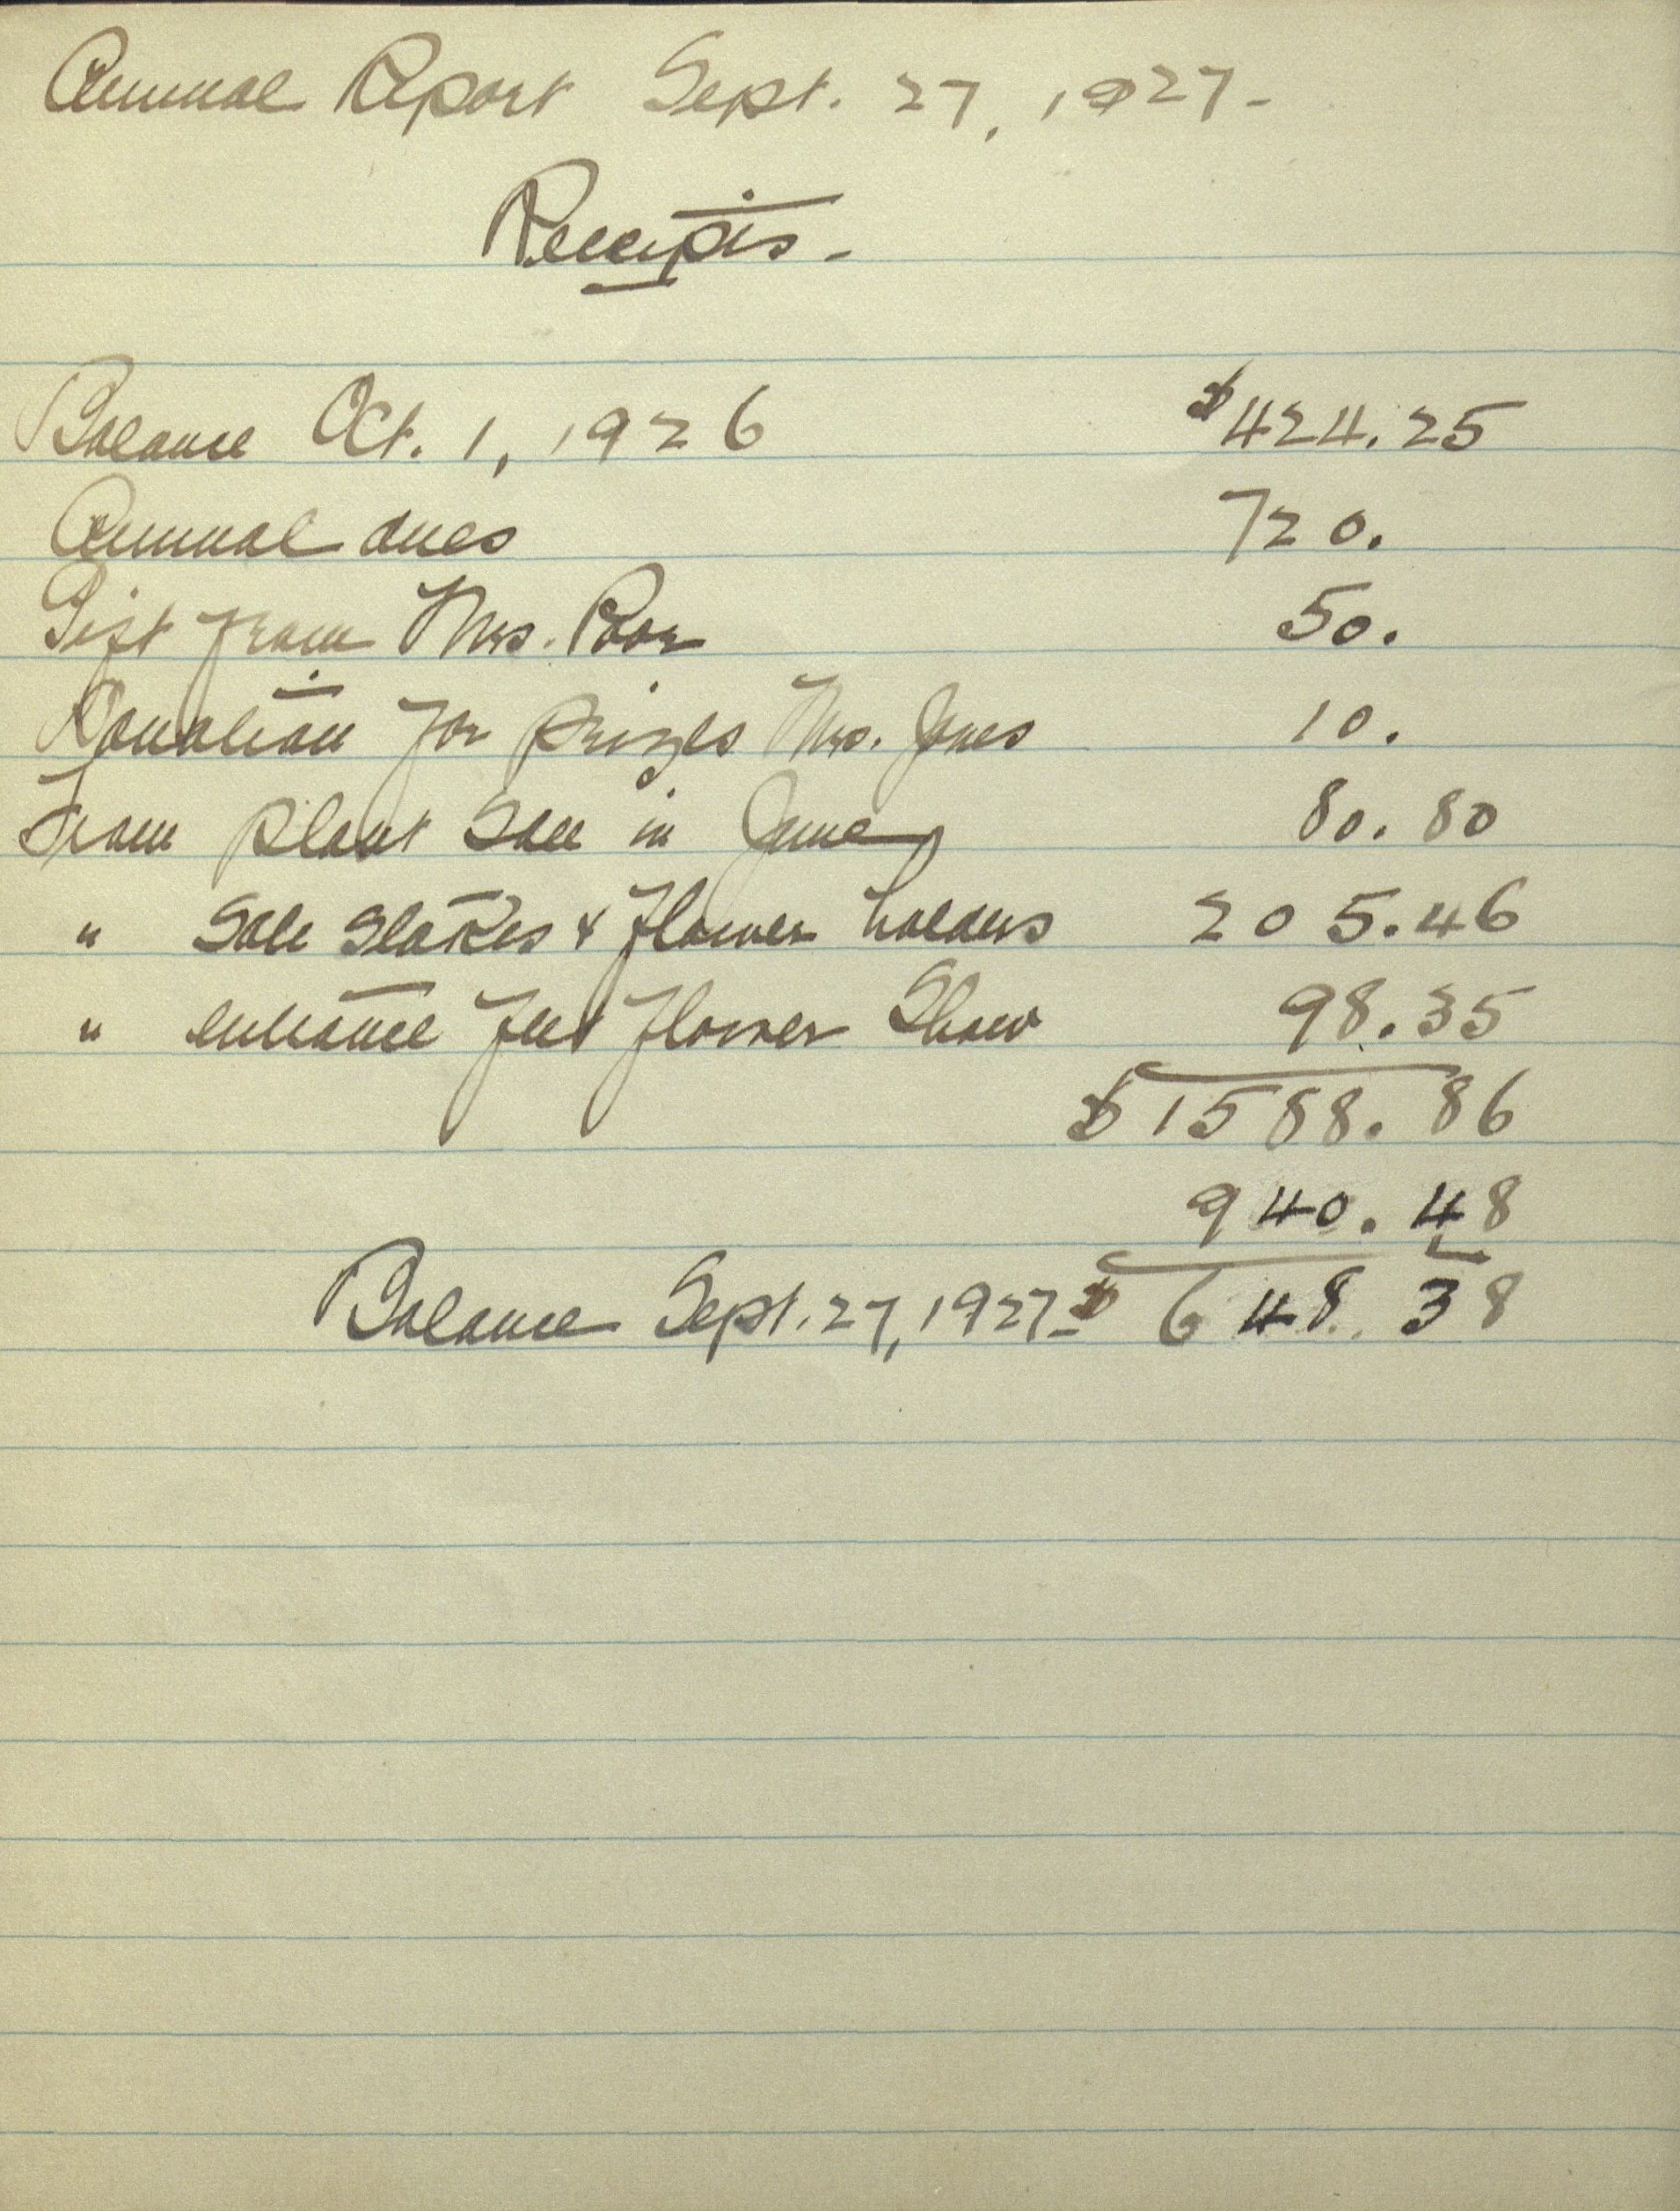 Annual Report Sept. 27, 1927-
Receipts-
Balance Oct. 1, 1926 $424.25
Annual dues 720.
Gift from Mrs. Poor 50.
Donation for prizes Mrs. Jones 10.
From plant sale in June 80.80
" Sale stakes & flower holders 205.46
" entrance fees Flower Show 98.35
$1588.86
940.48
Balance Sept. 27, 1927- $ 648.38